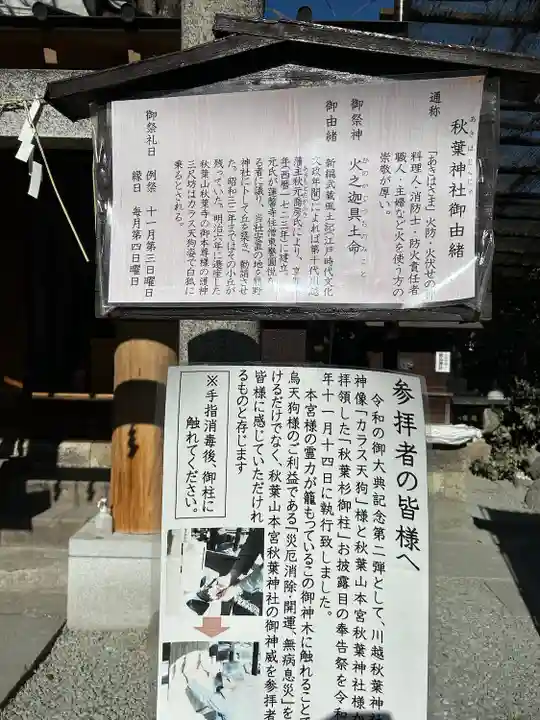 秋葉神社御由緒
あきはじんじゃ
通称
「あきはさま」火防・火伏せの
料理人・消防士・防火責任者
職人・主婦など火を使う方の
崇敬が厚い。
御祭神
火之迦具土命
かのかぐつちのみこと
御由緒
新編武蔵風土記(江戸時代文化
文政年間)によれば第十代川越
藩主秋元喬房氏により、
年(西暦一七二三年)に建立。
元氏が蓮馨寺住僧
る者に議り、当社出置の地を
神社にトして丘を築き、勧請させ
た。昭和三三年まではその小丘が
残っていた。明治六年に遷座した
秋葉山秋葉寺の御本尊様の護神
三尺坊はカラス天狗姿で白狐に
乗るとされる。
御祭礼日
例祭 十一月第三日曜日
縁日 毎月第四日曜日
参拝者の皆様へ
令和の御大典記念第二弾として、川越秋葉神
神像「カラス天狗」様と秋葉山本宮秋葉神社様か
拝領した「秋葉杉御柱」お披露目の奉告祭を令和
年十一月十四日に執行致しました。
本宮様の霊力が籠もっているこの御神木に触れることで
烏天狗様のご利益である「災厄消除・開運、無病息災」を
けるだけでなく、秋葉山本宮秋葉神社の御神威を参拝者
皆様に感じていただけれ
るものと存じます
※手指消毒後、御柱に
触れてください。